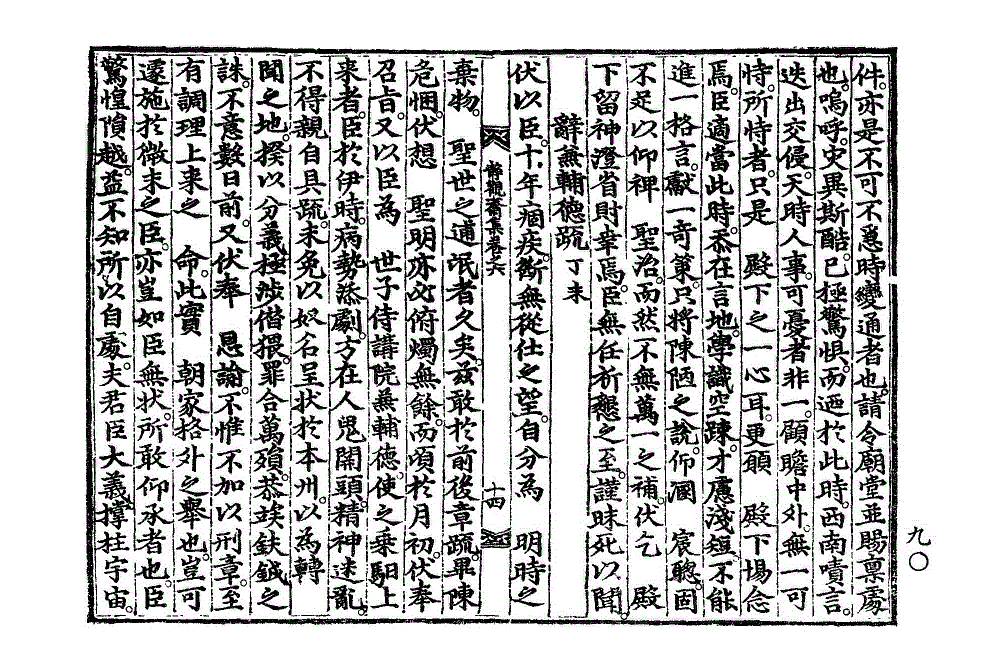 件。亦是不可不急時變通者也。請令廟堂並賜稟處
也。嗚呼。災異斯酷。已極驚惧。而迺於此時。西南嘖言。
迭出交侵。天時人事。可憂者非一。顧瞻中外。無一可
恃。所恃者。只是 殿下之一心耳。更願 殿下惕念
焉。臣適當此時。忝在言地。學識空踈。才慮淺短。不能
進一格言。獻一奇策。只將陳陋之說。仰溷 宸聰。固
不足以仰裨 聖治。而然不無萬一之補。伏乞 殿
下留神澄省則幸焉。臣無任祈懇之至。謹昧死以聞。
辭兼輔德疏 丁未
伏以臣。十年痼疾。斷無從仕之望。自分爲 明時之
靜觀齋集卷之六 十四
棄物。 聖世之逋氓者久矣。玆敢於前後章疏。畢陳
危悃。伏想 聖明亦必俯燭無餘。而頃於月初。伏奉
召旨。又以臣爲 世子侍講院兼輔德。使之乘馹上
來者。臣於伊時。病勢添劇。方在人鬼關頭。精神迷亂。
不得親自具疏。未免以奴名呈狀於本州。以爲轉
聞之地。揆以分義。極涉僭猥。罪合萬殞。恭竢鈇鉞之
誅。不意數日前。又伏奉 恩諭。不惟不加以刑章。至
有調理上來之 命。此實 朝家格外之擧也。豈可
遽施於微末之臣。亦豈如臣無狀。所敢仰承者也。臣
驚惶隕越。益不知所以自處。夫君臣大義。撑柱宇宙。
九〇